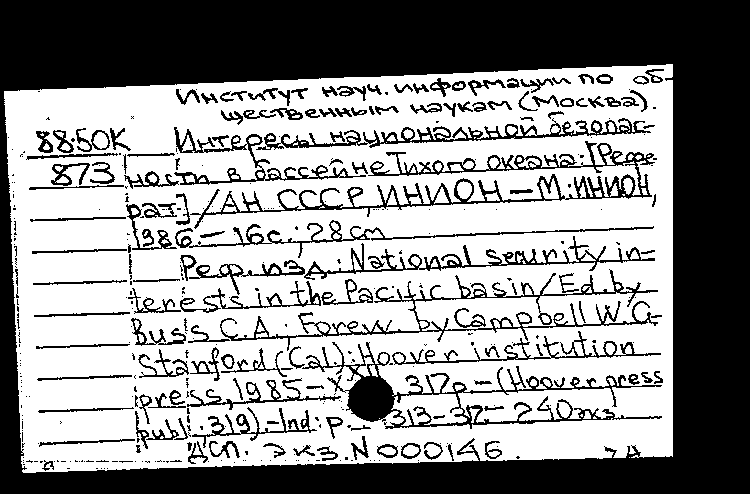 Институт науч. информации по об-
щественным наукам (Москва).
88-50К Интересы национальной безопас-
873 ности в бассейне Тихого океана: [Рефе-
рат] / АН СССР, ИНИОН — М.: ИНИОН,
1986. — 16с.; 28см
Реф. изд.: National security in-
terests in the Pacific basin / Ed. by
Buss C.A.; Forew. by Campbell W.G.
Stanford (Cal): Hoover institution
press, 1985. — 317p. — (Hoover press
publ.: 319). — Ind: p. 313-317. — 240экз.
ДСП. Экз. N 000146.